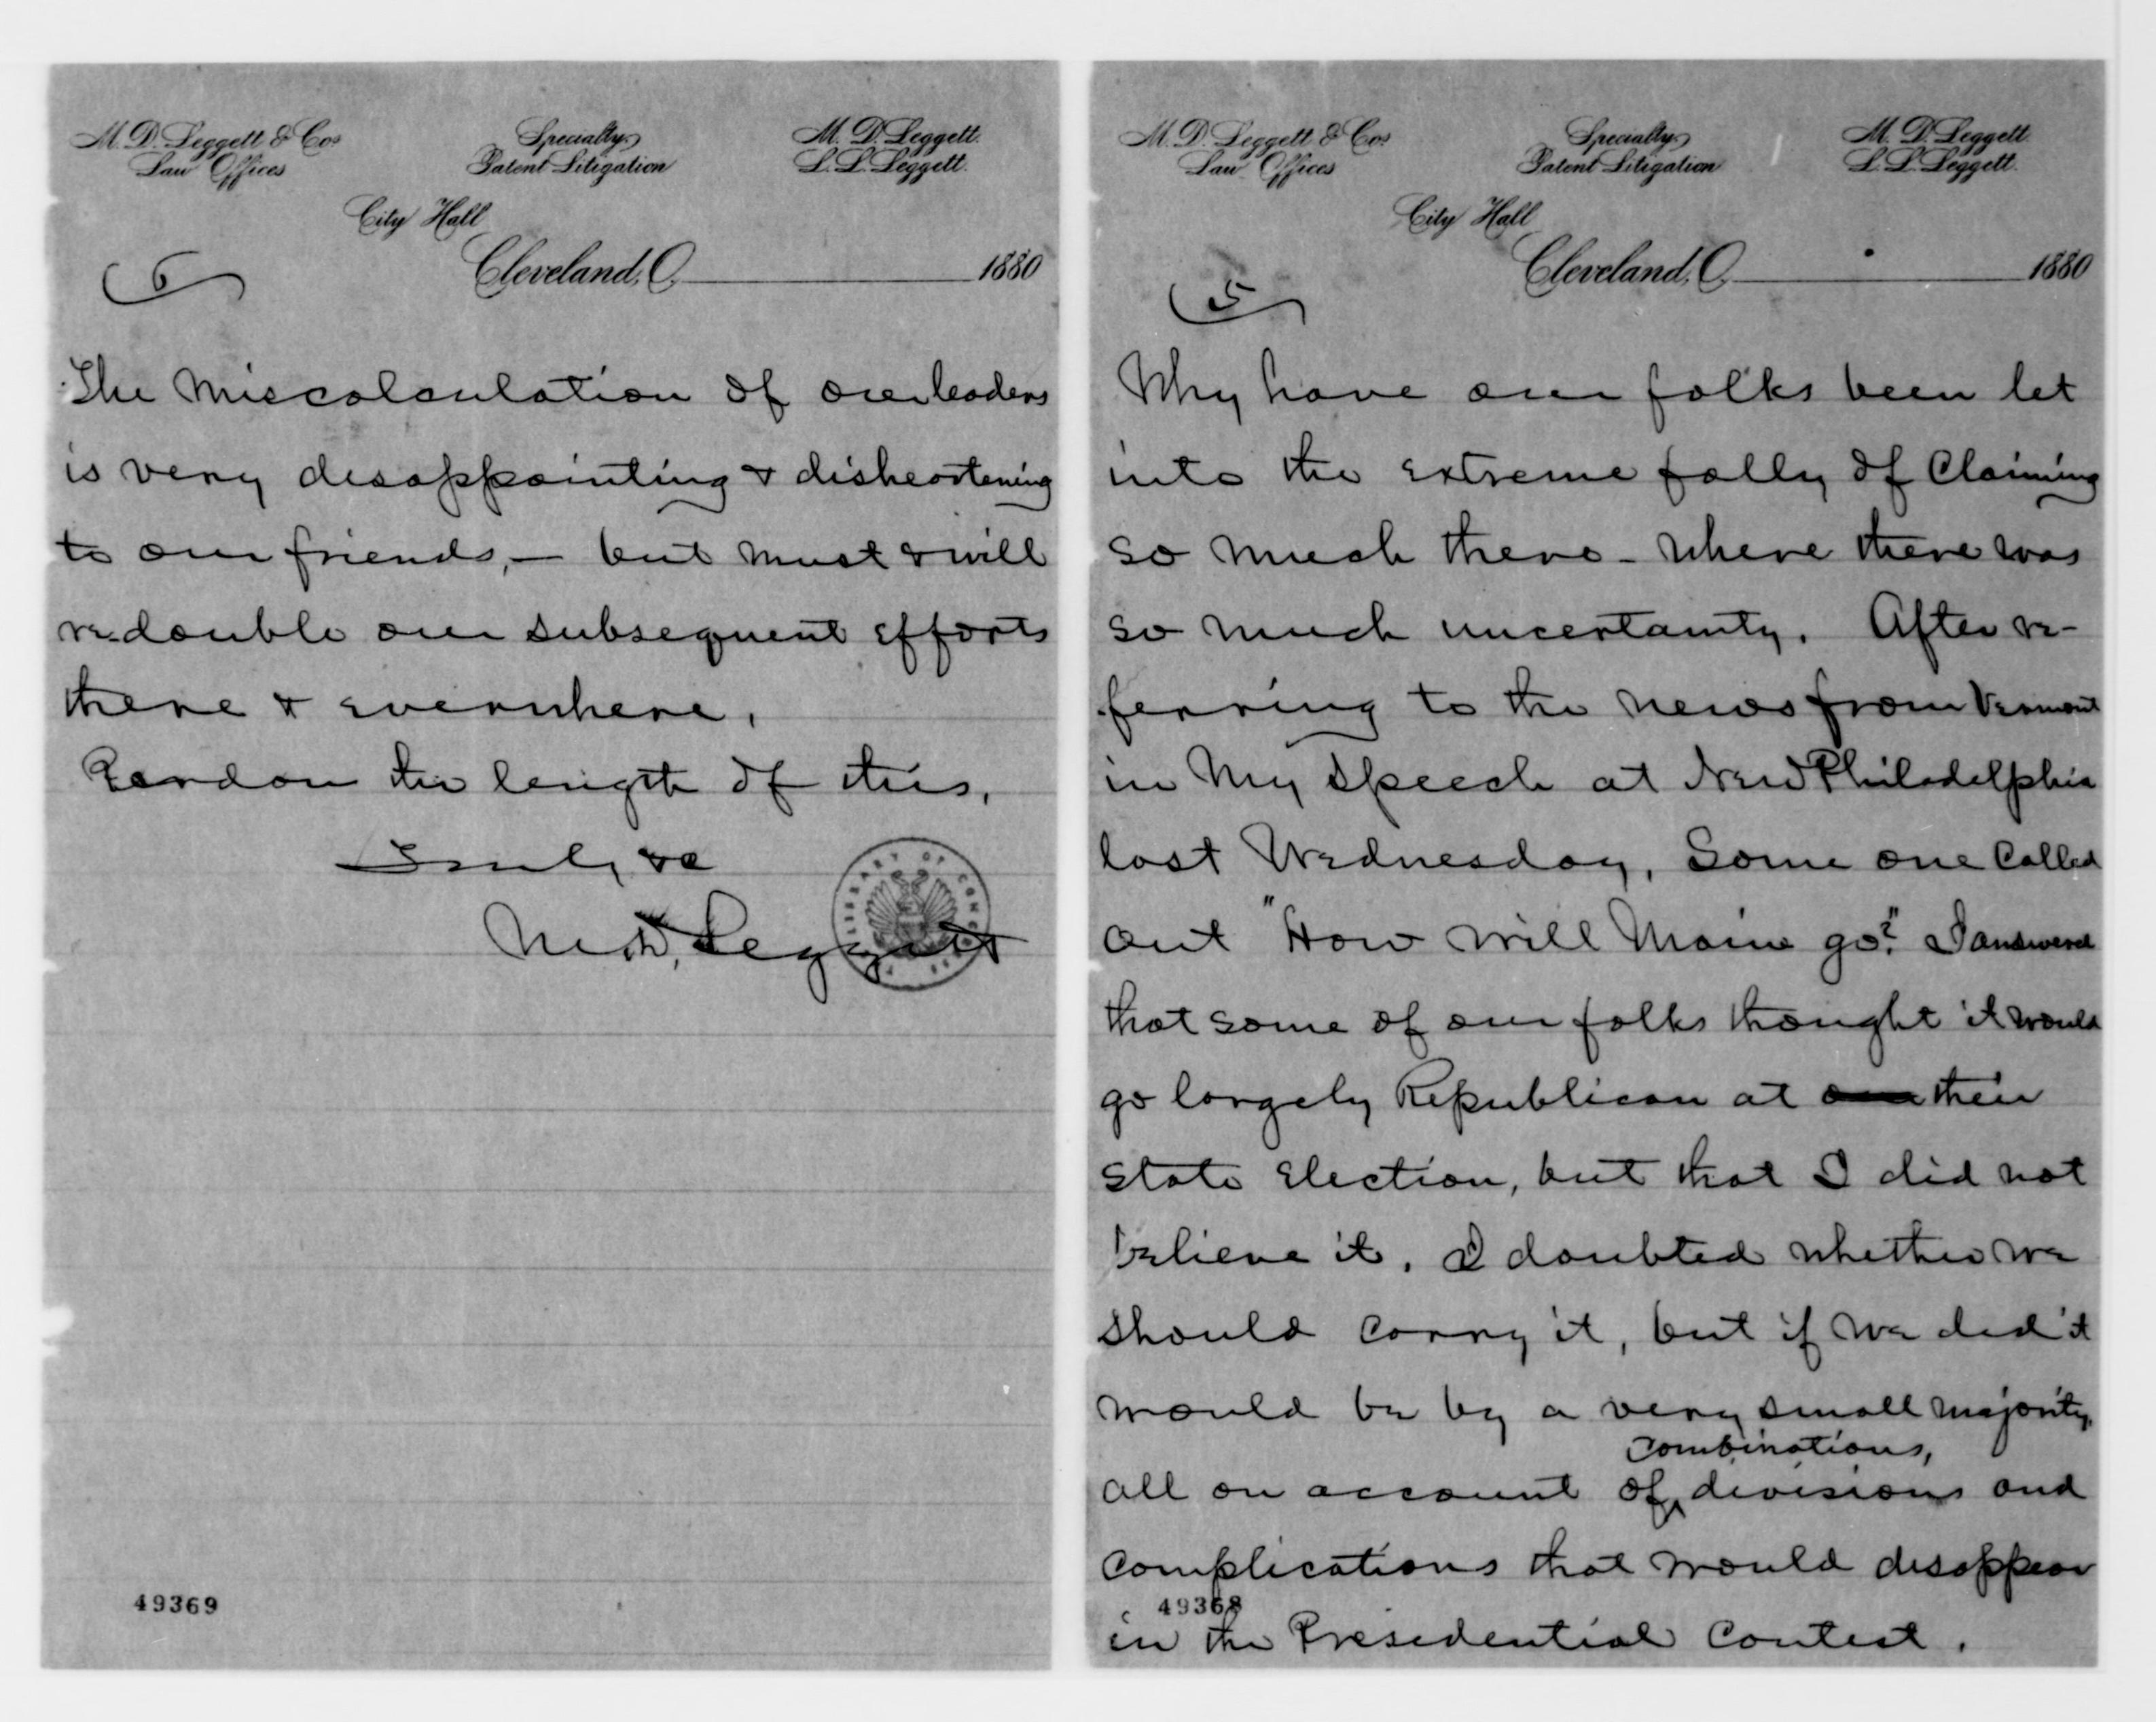 M. D. Leggett & Co.
Law Offices
Specialty
Patent Litigation
M. D. Leggett.
L. L. Leggett.
City Hall
Cleveland, O. 1880
6
The miscalculation of our leaders
is very disappointing & disheartening
to our friends, — but must & will
re-double our subsequent efforts
there & everywhere.
Pardon the length of this.
Truly &c
M. D. Leggett
LIBRARY OF CONGRESS
49369
M. D. Leggett & Co.
Law Offices
Specialty
Patent Litigation
M. D. Leggett
L. L. Leggett.
City Hall
Cleveland, O. 1880
5
Why have our folks been let
into the extreme folly of claiming
so much there - where there was
so much uncertainty. After re-
ferring to the news from Vermont
in my speech at New Philadelphia
last Wednesday, some one called
out "How will Maine go?" I answered
that some of our folks thought it would
go largely Republican at our their
state election, but that I did not
believe it. I doubted whether we
should carry it, but if we did it
would be by a very small majority,
combinations,
all on account of divisions and
complications that would disappear
49368
in the Presidential contest.